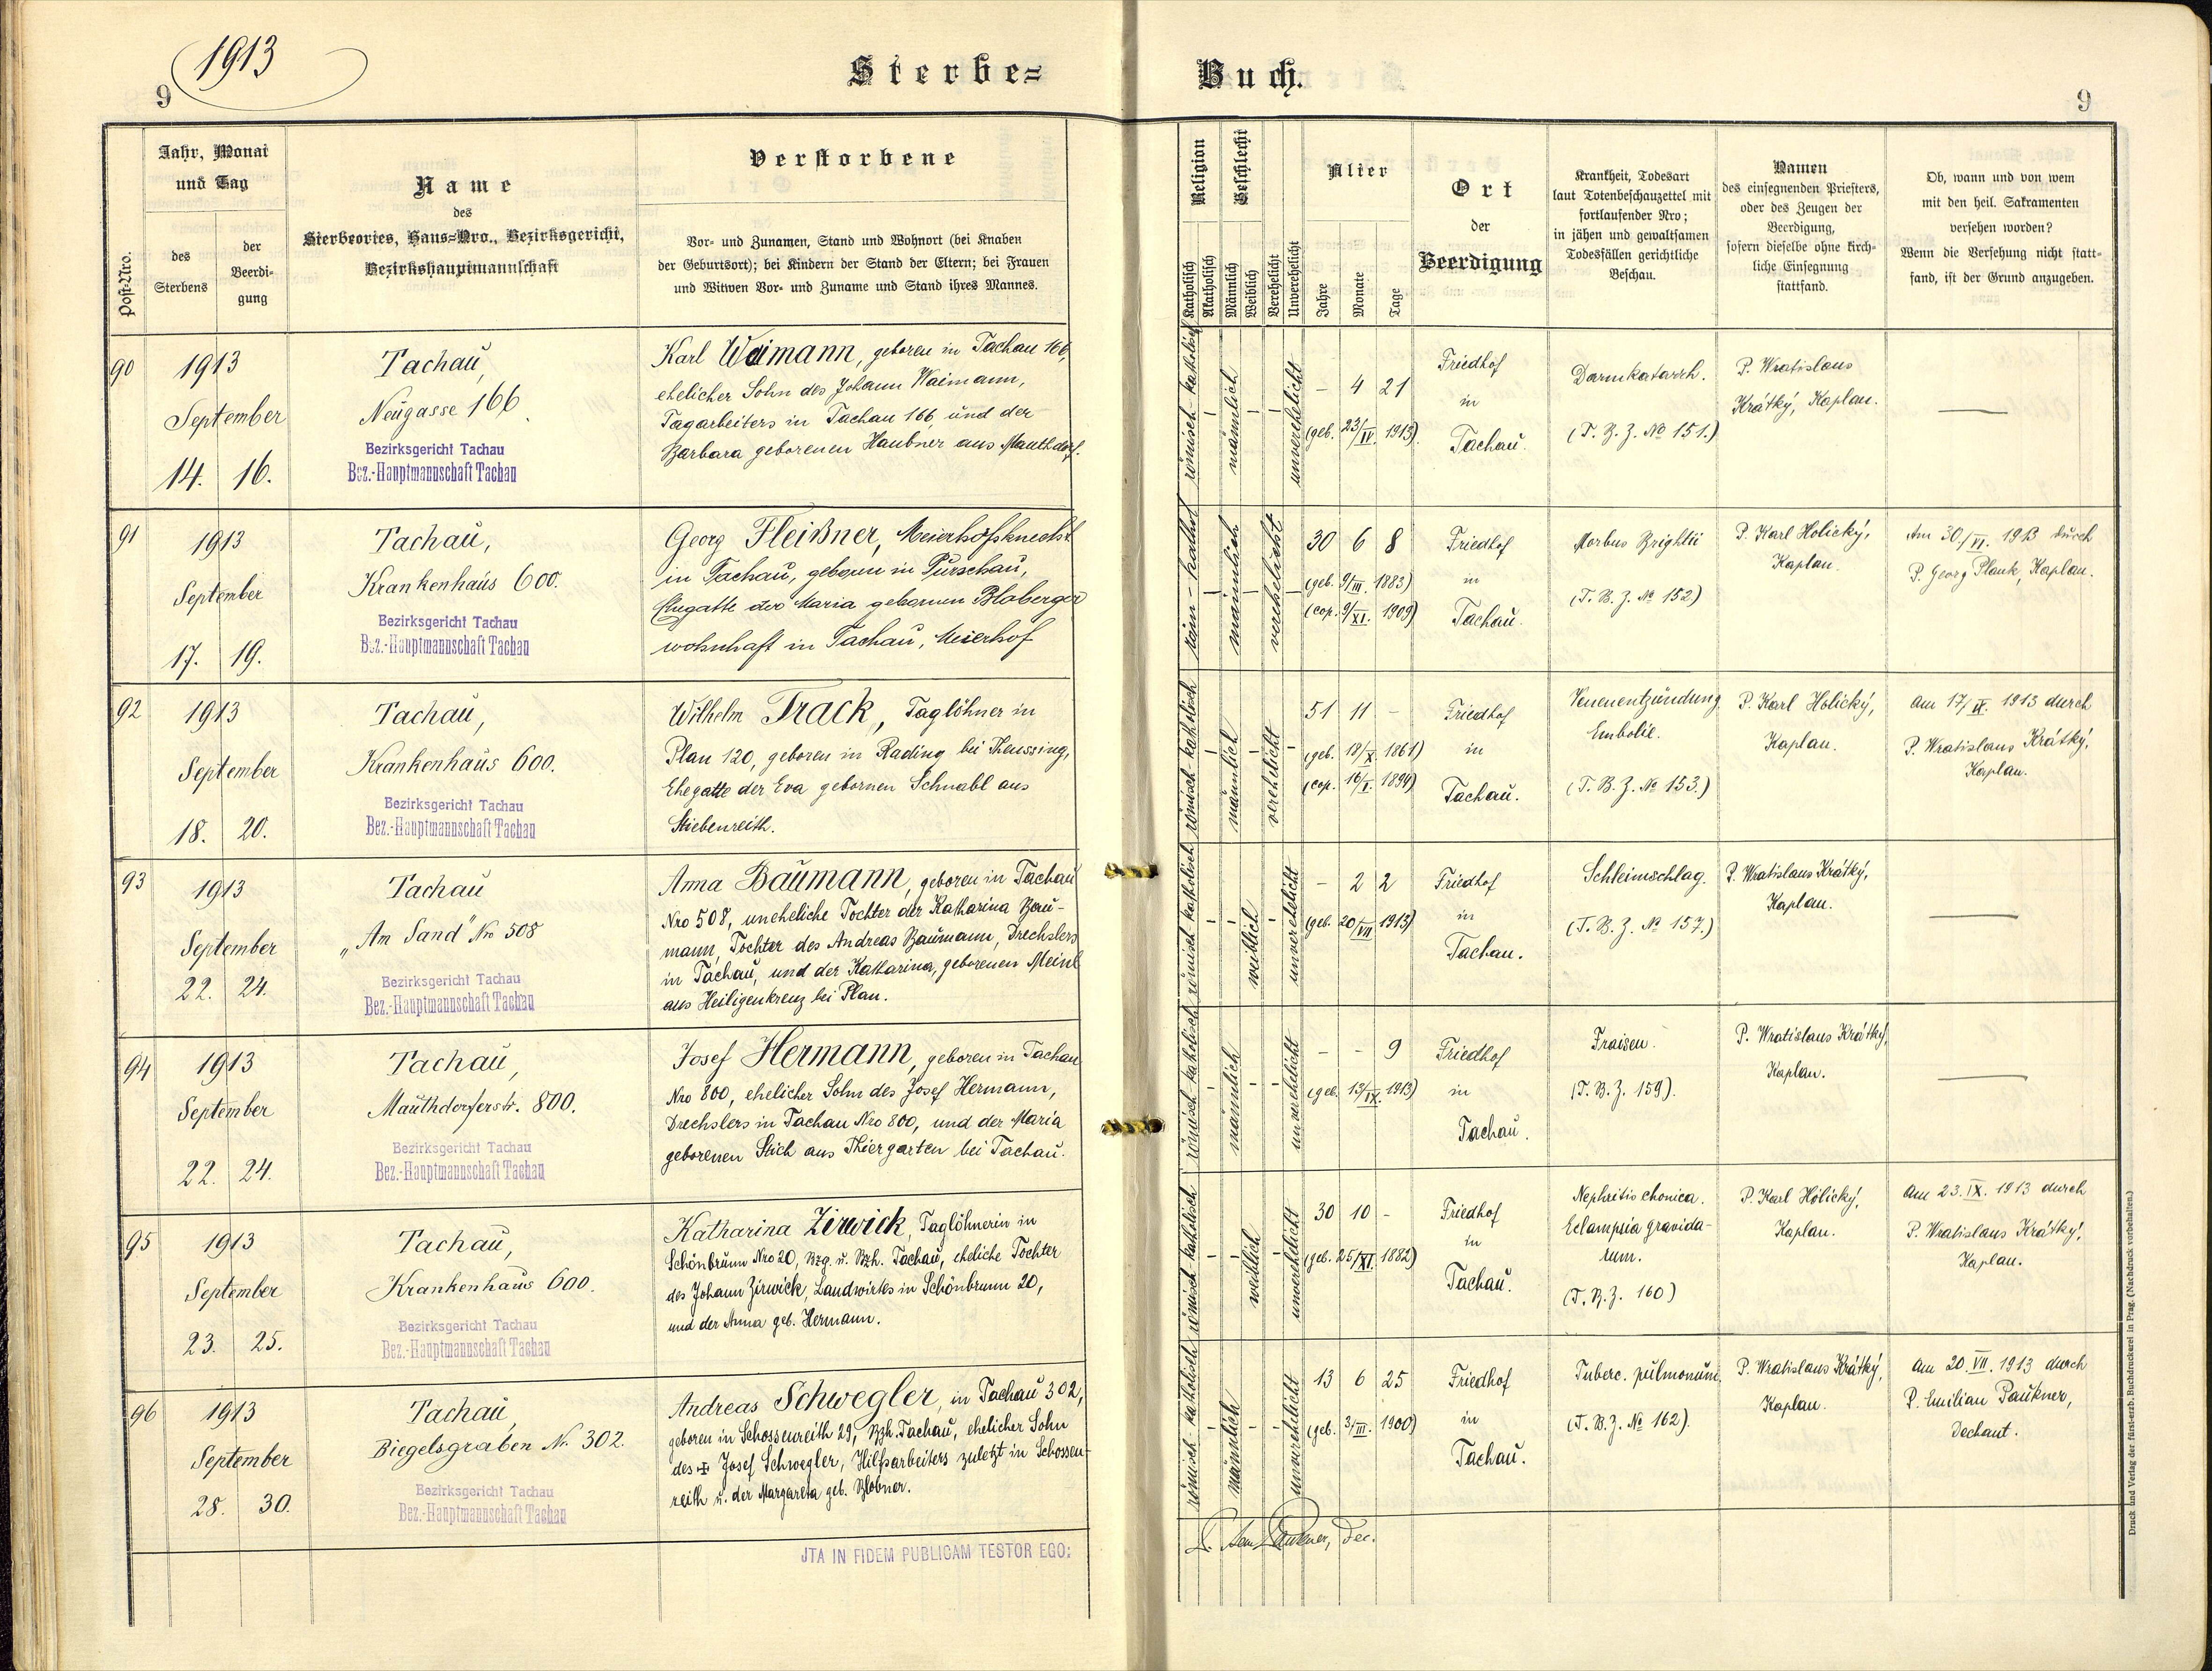 1913
9
Sterbe=
Buch.
9
Post-Nro.
Jahr, Monat
und Tag
des
Sterbens
der
Beerdi-
gung
Name
des
Sterbeortes, Haus=Nro., Bezirksgericht,
Bezirkshauptmannschaft
Verstorbene
Vor- und Zunamen, Stand und Wohnort (bei Knaben
der Geburtsort); bei Kindern der Stand der Eltern; bei Frauen
und Witwen Vor- und Zuname und Stand ihres Mannes.
Religion
Katholisch
Akatholisch
Geschlecht
Männlich
Weiblich
Verehelicht
Unverehelicht
Alter
Jahre
Monate
Tage
Ort
der
Beerdigung
Krankheit, Todesart
laut Totenbeschauzettel mit
fortlaufender Nro;
in jähen und gewaltsamen
Todesfällen gerichtliche
Beschau.
Namen
des einsegnenden Priesters,
oder des Zeugen der
Beerdigung,
sofern dieselbe ohne kirch-
liche Einsegnung
stattfand.
Ob, wann und von wem
mit den heil. Sakramenten
versehen worden?
Wenn die Versehung nicht statt-
fand, ist der Grund anzugeben.
90
1913
September
14. 16.
Tachau,
Neugasse 166.
Bezirksgericht Tachau
Bez.-Hauptmannschaft Tachau
Karl Waimann, geboren in Tachau 166,
ehelicher Sohn des Johann Waimann,
Tagarbeiters in Tachau 166, und der
Barbara geborenen Haubner aus Mauthdorf.
römisch-katholisch
männlich
unverehelicht
– 4 21
(geb. 23/IV. 1913).
Friedhof
in
Tachau.
Darmkatarrh.
(T. B. Z. No 151.)
P. Wratislaus
Krátký, Kaplan.
—
91
1913
September
17. 19.
Tachau,
Krankenhaus 600.
Bezirksgericht Tachau
Bez.-Hauptmannschaft Tachau
Georg Fleißner, Meierhofsknecht
in Tachau, geboren in Purschau,
Ehegatte der Maria gebornen Bloberger
wohnhaft in Tachau, Meierhof
röm-kathol
männlich
verehelicht
30 6 8
(geb. 9/III. 1883)
(cop. 9/XI. 1909)
Friedhof
in
Tachau.
Morbus Brightii
(T. B. Z. No 152)
P. Karl Holický,
Kaplan.
Am 30./VI. 1913 durch
P. Georg Plank, Kaplan.
92
1913
September
18. 20.
Tachau,
Krankenhaus 600.
Bezirksgericht Tachau
Bez.-Hauptmannschaft Tachau
Wilhelm Track, Taglöhner in
Plan 120, geboren in Rading bei Theussing,
Ehegatte der Eva gebornen Schnabl aus
Stiebenreith.
römisch-katholisch
männlich
verehelicht
51 11 –
(geb. 18/X. 1861)
(cop. 16/I. 1894)
Friedhof
in
Tachau.
Venenentzündung
Embolie.
(T. B. Z. No 153.)
P. Karl Holický,
Kaplan.
Am 17/IX. 1913 durch
P. Wratislaus Krátký,
Kaplan.
93
1913
September
22. 24.
Tachau
„Am Sand" Nro 508
Bezirksgericht Tachau
Bez.-Hauptmannschaft Tachau
Anna Baumann, geboren in Tachau
Nro 508, uneheliche Tochter der Katharina Bau-
mann, Tochter des Andreas Baumann, Drechslers
in Tachau, und der Katharina, geborenen Meinl
aus Heiligenkreuz bei Plan.
römisch katholisch
weiblich
unverehelicht
– 2 2
(geb. 20/VII 1913)
Friedhof
in
Tachau.
Schleimschlag.
(T. B. Z. No 157.)
P. Wratislaus Krátký,
Kaplan.
—
94
1913
September
22. 24.
Tachau,
Mauthdorferstr. 800.
Bezirksgericht Tachau
Bez.-Hauptmannschaft Tachau
Josef Hermann, geboren in Tachau
Nro 800, ehelicher Sohn des Josef Hermann,
Drechslers in Tachau Nro 800, und der Maria
geborenen Stich aus Thiergarten bei Tachau.
römisch-katholisch
männlich
unverehelicht
– – 9
(geb. 13/IX. 1913)
Friedhof
in
Tachau.
Fraisen.
(T. B. Z. 159).
P. Wratislaus Krátký,
Kaplan.
—
95
1913
September
23. 25.
Tachau,
Krankenhaus 600.
Bezirksgericht Tachau
Bez.-Hauptmannschaft Tachau
Katharina Zirwick, Taglöhnerin in
Schönbrunn Nro 20, Bzg. u. Bzh. Tachau, eheliche Tochter
des Johann Zirwick, Landwirtes in Schönbrunn 20,
und der Anna geb. Hermann.
römisch-katholisch
weiblich
unverehelicht
30 10 –
(geb. 25/XI. 1882)
Friedhof
in
Tachau.
Nephritis chonica.
Eclampsia gravida-
rum.
(T. B. Z. 160)
P. Karl Holický,
Kaplan.
Am 23. IX. 1913 durch
P. Wratislaus Krátký,
Kaplan.
96
1913
September
28. 30.
Tachau,
Biegelsgraben Nr. 302.
Bezirksgericht Tachau
Bez.-Hauptmannschaft Tachau
Andreas Schwegler, in Tachau 302,
geboren in Schossenreith 29, Bzh. Tachau, ehelicher Sohn
des ✠ Josef Schwegler, Hilfsarbeiters zuletzt in Schossen-
reith u. der Margareta geb. Blobner.
römisch-katholisch
männlich
unverehelicht
13 6 25
(geb. 3/III. 1900)
Friedhof
in
Tachau.
Tuberc. pulmonum.
(T. B. Z. No 162).
P. Wratislaus Krátký,
Kaplan.
Am 20. VII. 1913 durch
P. Emilian Paukner,
Dechant.
JTA IN FIDEM PUBLICAM TESTOR EGO:
Paukner, Dec.
Druck und Verlag der fürst-erzb. Buchdruckerei in Prag. (Nachdruck vorbehalten.)